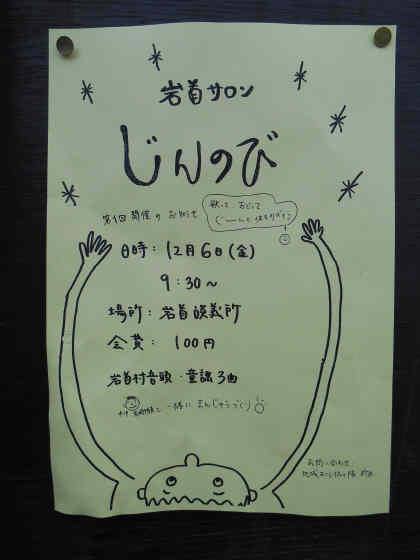 岩首サロン
じんのび
第1回 開催の お知らせ
歌って おどって
日時：12月6日(金)
9：30〜
場所：岩首談義所
会費：100円
岩首村音頭・童謡3曲
一緒に まんじゅうづくり
お問い合わせ
地域おこし協力隊